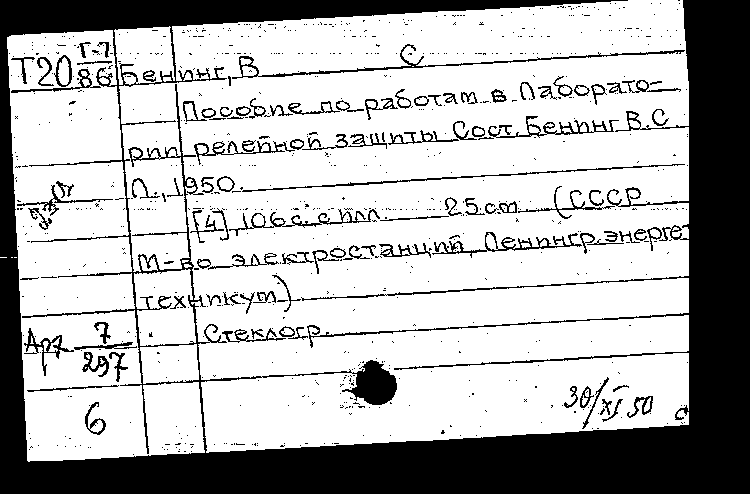 Т20 Г-7/86 Бенинг, В С
Пособие по работам в Лаборато-
рии релейной защиты Сост. Бенинг В.С
Л., 1950.
[4], 106 с. с илл. 25 cm (СССР
М-во электростанций, Ленингр. энерге-
техникум)
Арх 7/297 Стеклогр.
6
30/XI 50